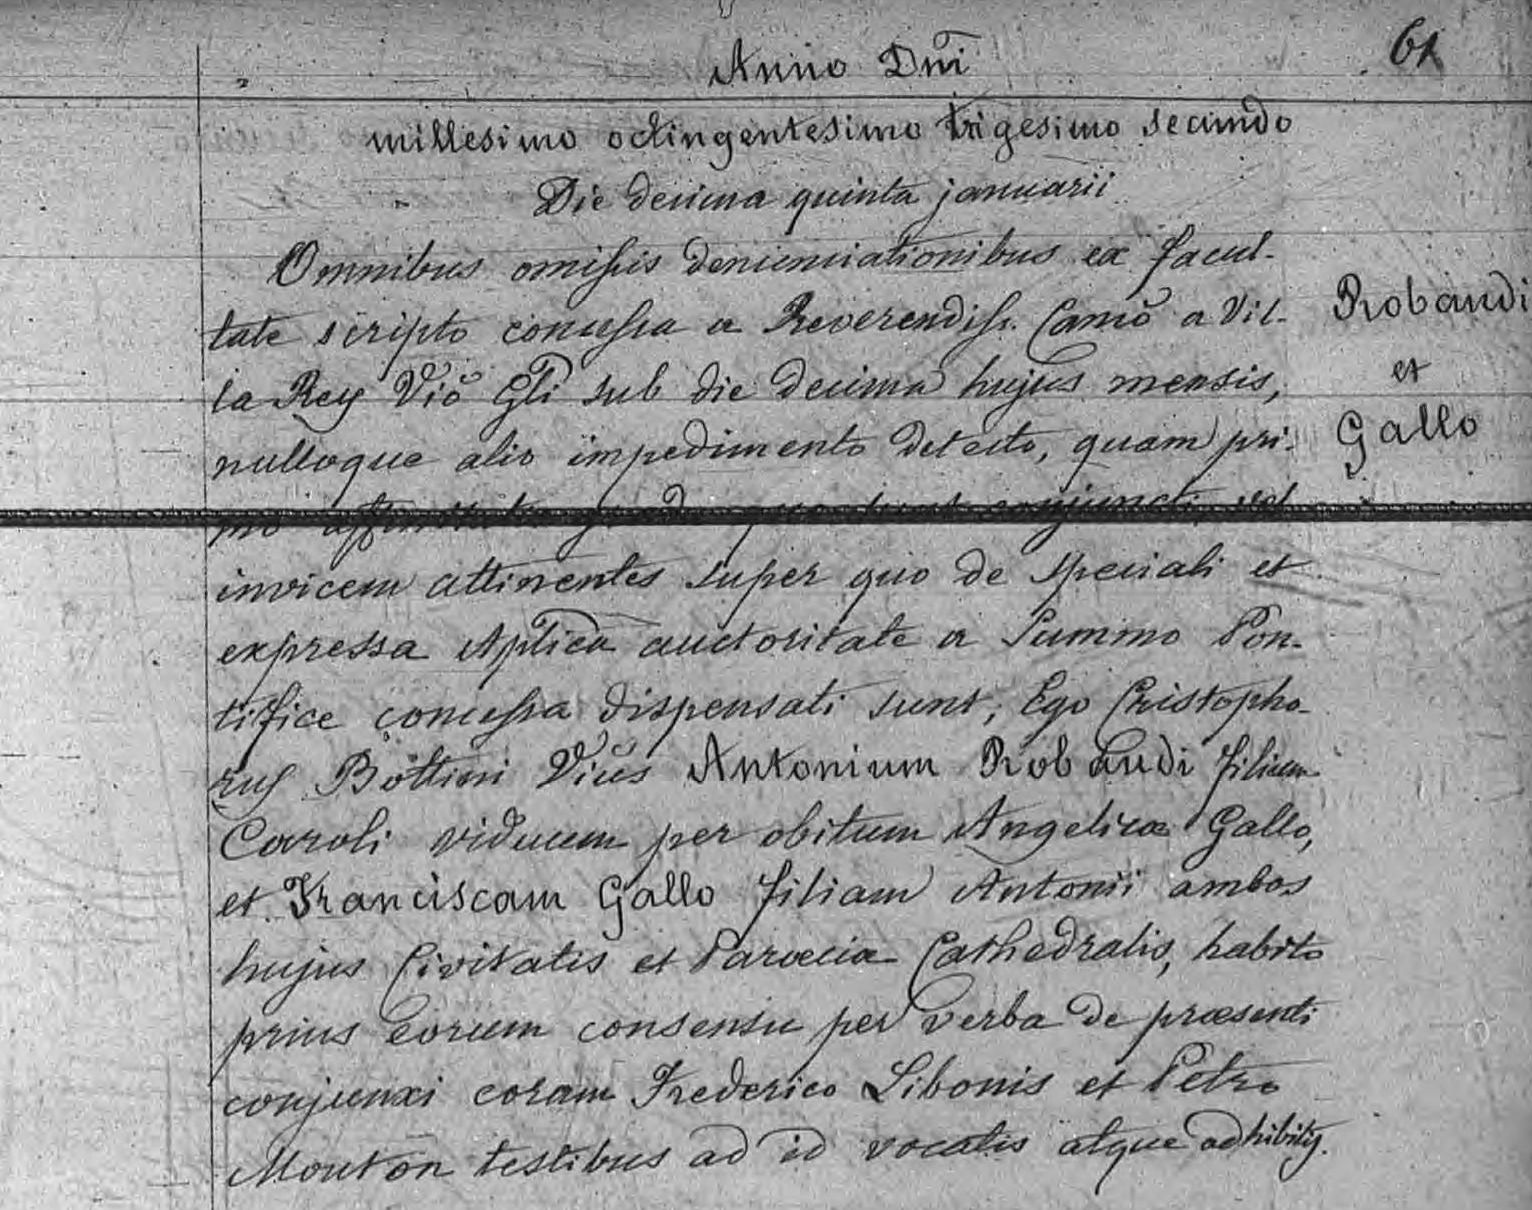 61
Anno Dñi
millesimo octingentesimo trigesimo secundo
Die decima quinta januarii
Omnibus omissis denunciationibus ex facul-
tate scripto concessa a Reverendiss. Canco a Vil-
la Rey Vio Gli sub die decima hujus mensis,
nulloque alio impedimento detecto, quam pri-
mo affinitatis gradu quo sunt conjuncti, vel
invicem attinentes super quo de speciali et
expressa Aplica auctoritate a Summo Pon-
tifice concessa dispensati sunt; Ego Christopho-
rus Bottini Vicus Antonium Robaudi filium
Caroli viduum per obitum Angelicæ Gallo,
et Franciscam Gallo filiam Antonii ambos
hujus Civitatis et Paroecia Cathedralis, habito
prius eorum consensu per verba de præsenti
conjunxi coram Frederico Libonis et Petro
Mouton testibus ad id vocatis atque adhibitis.
Robaudi
et
Gallo